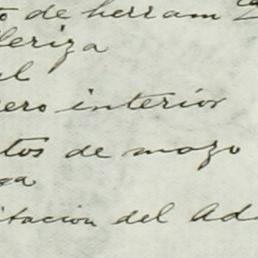 to de herram
leriza
el
ero interior
tos de mozo
ga
itacion del Ad